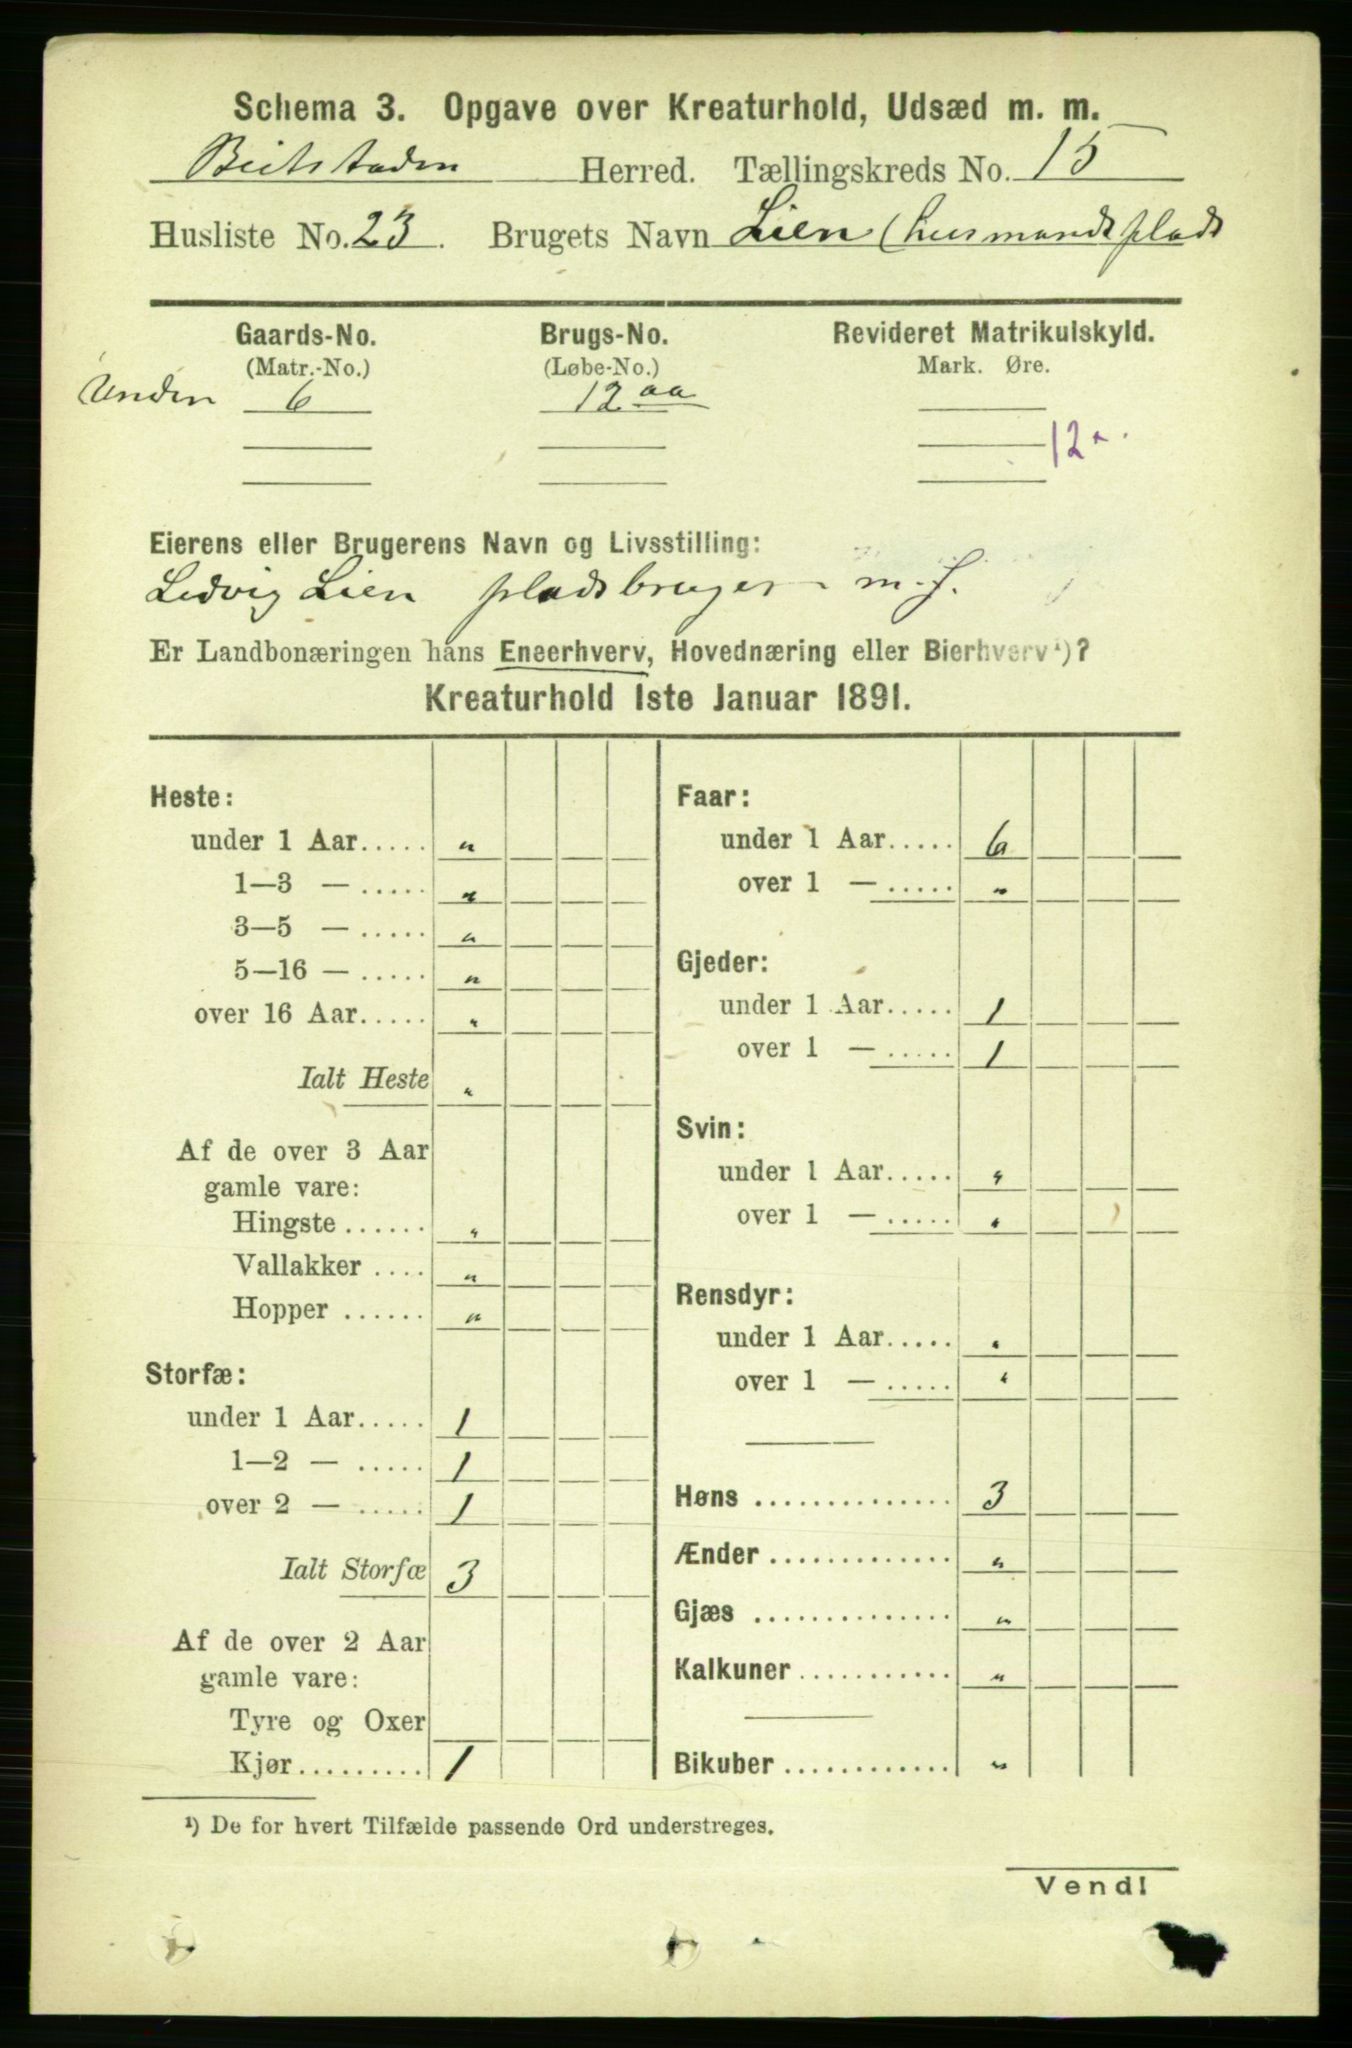 Schema 3. Opgave over Kreaturhold, Udsæd m. m.
Beitstaden Herred. Tællingskreds No. 15
Husliste No. 23. Brugets Navn Lien (husmandsplads
Gaards-No. Brugs-No. Revideret Matrikulskyld.
(Matr.-No.) (Løbe-No.) Mark. Øre.
Under 6 12 aa
12
Eierens eller Brugerens Navn og Livsstilling:
Ludvig Lien pladsbruger m. J.
Er Landbonæringen hans Eneerhverv, Hovednæring eller Bierhverv ¹)?
Kreaturhold 1ste Januar 1891.
Heste:
under 1 Aar..... "
1—3 — ..... "
3—5 — ..... "
5—16 — ..... "
over 16 Aar..... "
Ialt Heste "
Af de over 3 Aar
gamle vare:
Hingste ...... "
Vallakker .... "
Hopper ...... "
Storfæ:
under 1 Aar..... 1
1—2 — ..... 1
over 2 — ..... 1
Ialt Storfæ 3
Af de over 2 Aar
gamle vare:
Tyre og Oxer
Kjør......... 1
Faar:
under 1 Aar..... 6
over 1 — ..... "
Gjeder:
under 1 Aar..... 1
over 1 — ..... 1
Svin:
under 1 Aar..... "
over 1 — ..... "
Rensdyr:
under 1 Aar..... "
over 1 — ..... "
Høns .............. 3
Ænder ............. "
Gjæs .............. "
Kalkuner........... "
Bikuber ............ "
¹) De for hvert Tilfælde passende Ord understreges.
Vend!